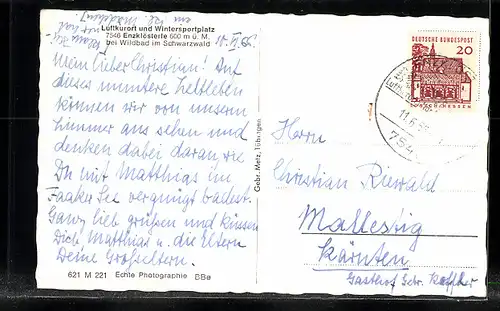 Luftkurort und Wintersportplatz
7546 Enzklösterle 600 m ü. M.
bei Wildbad im Schwarzwald
Mein lieber Christian! Auf
dieses muntere Zeltleben
können wir von unserm
Zimmer aus sehen und
denken dabei daran, wie
Du mit Matthias im
Faaker See vergnügt badest.
Ganz lieb grüßen und küssen
Dich, Matthias u. die Eltern
Deine Großeltern.
621 M 221 Echte Photographie BBe
Gebr. Metz, Tübingen
DEUTSCHE BUNDESPOST
20
LORSCH HESSEN
11.6.
754
Herrn
Christian Riewald
Mallestig
Kärnten
Gasthof